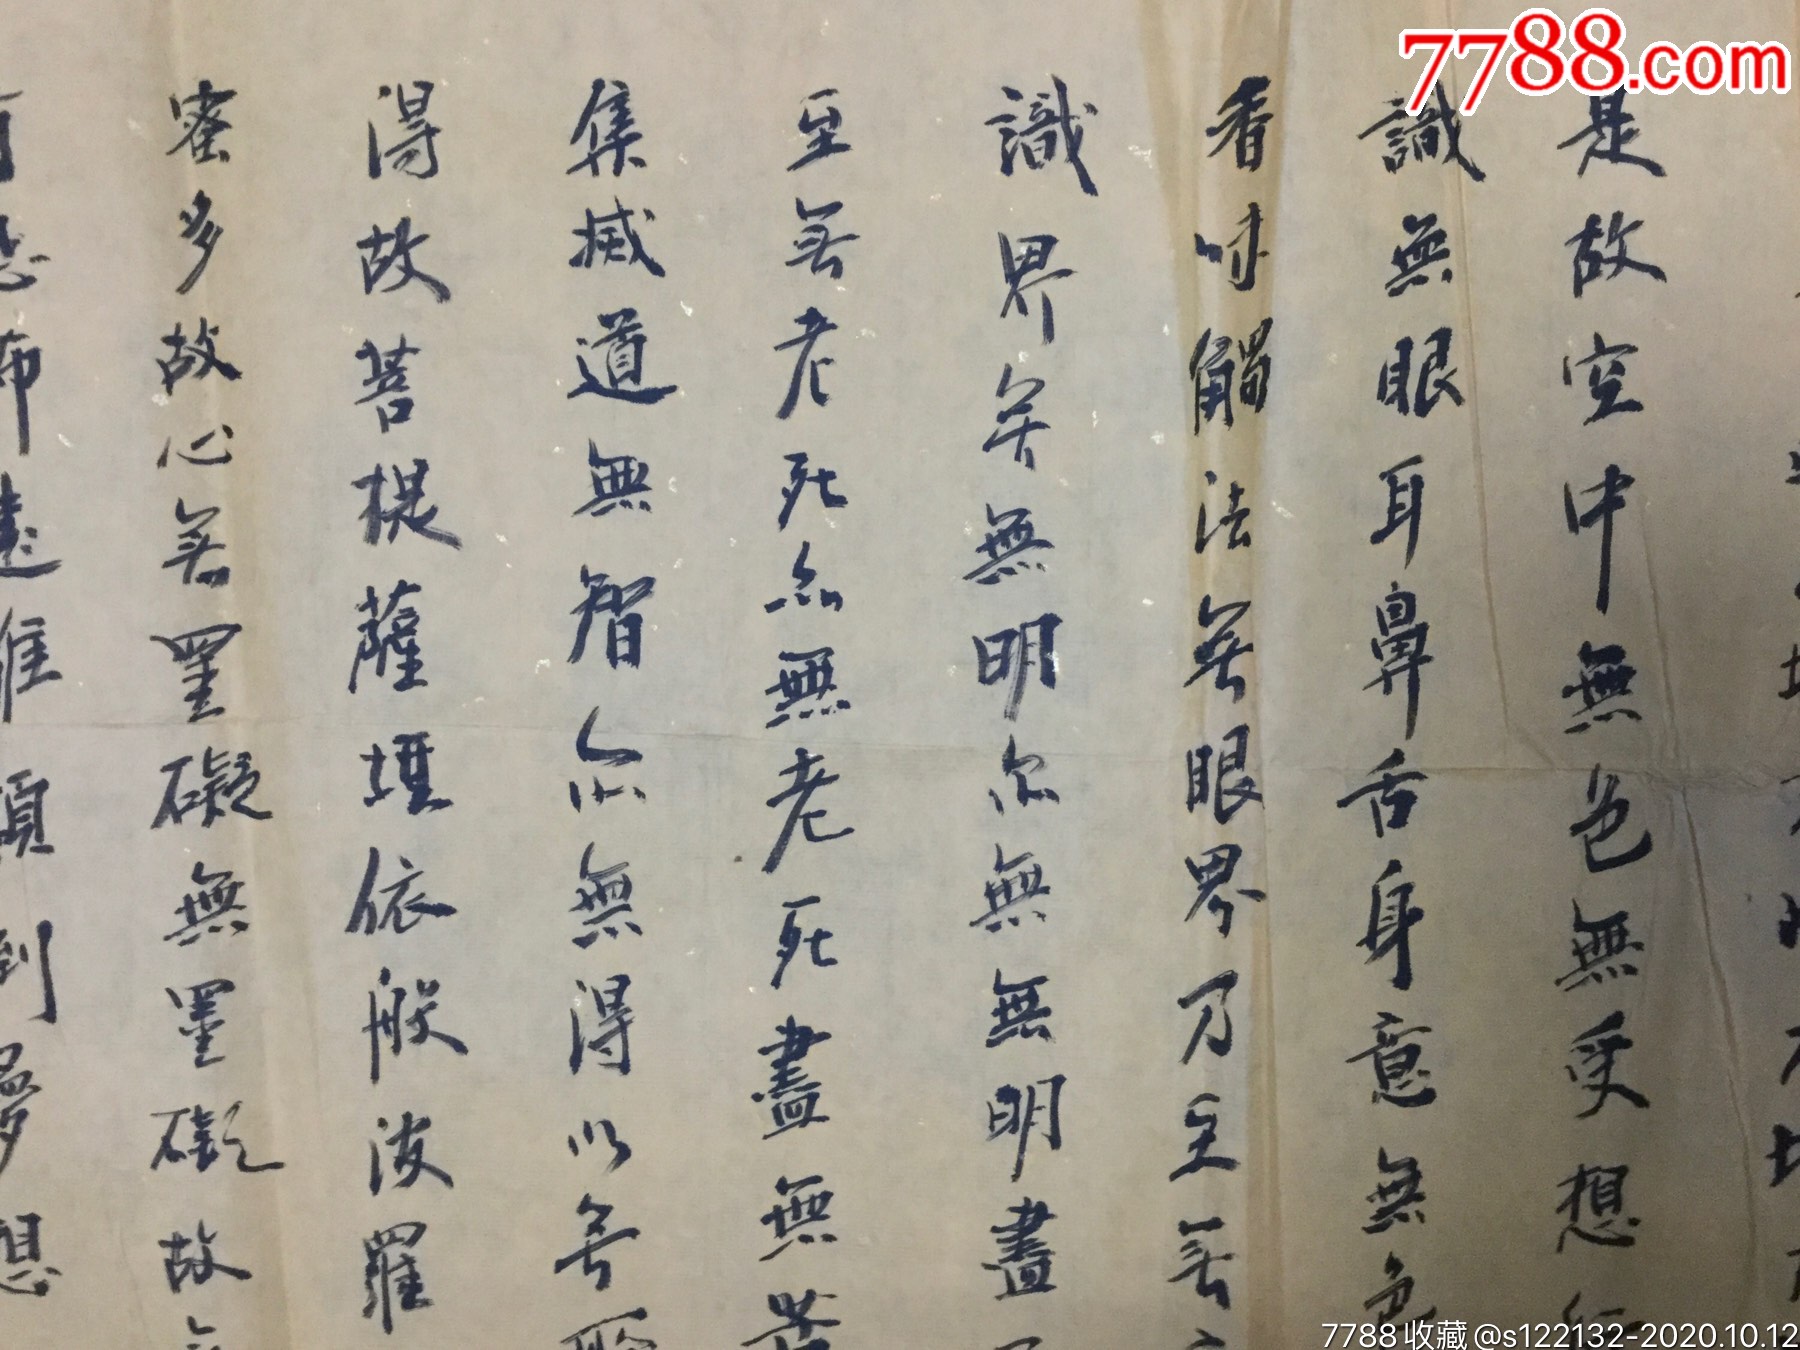 7788.com
是故空中無色無受想行
識無眼耳鼻舌身意無色
香味觸法無眼界乃至無
識界無無明亦無無明盡
至無老死亦無老死盡無苦
集滅道無智亦無得以無所
得故菩提薩埵依般波羅
蜜多故心無罣礙無罣礙故
有恐怖遠離顛倒夢想
7788收藏@s122132-2020.10.12